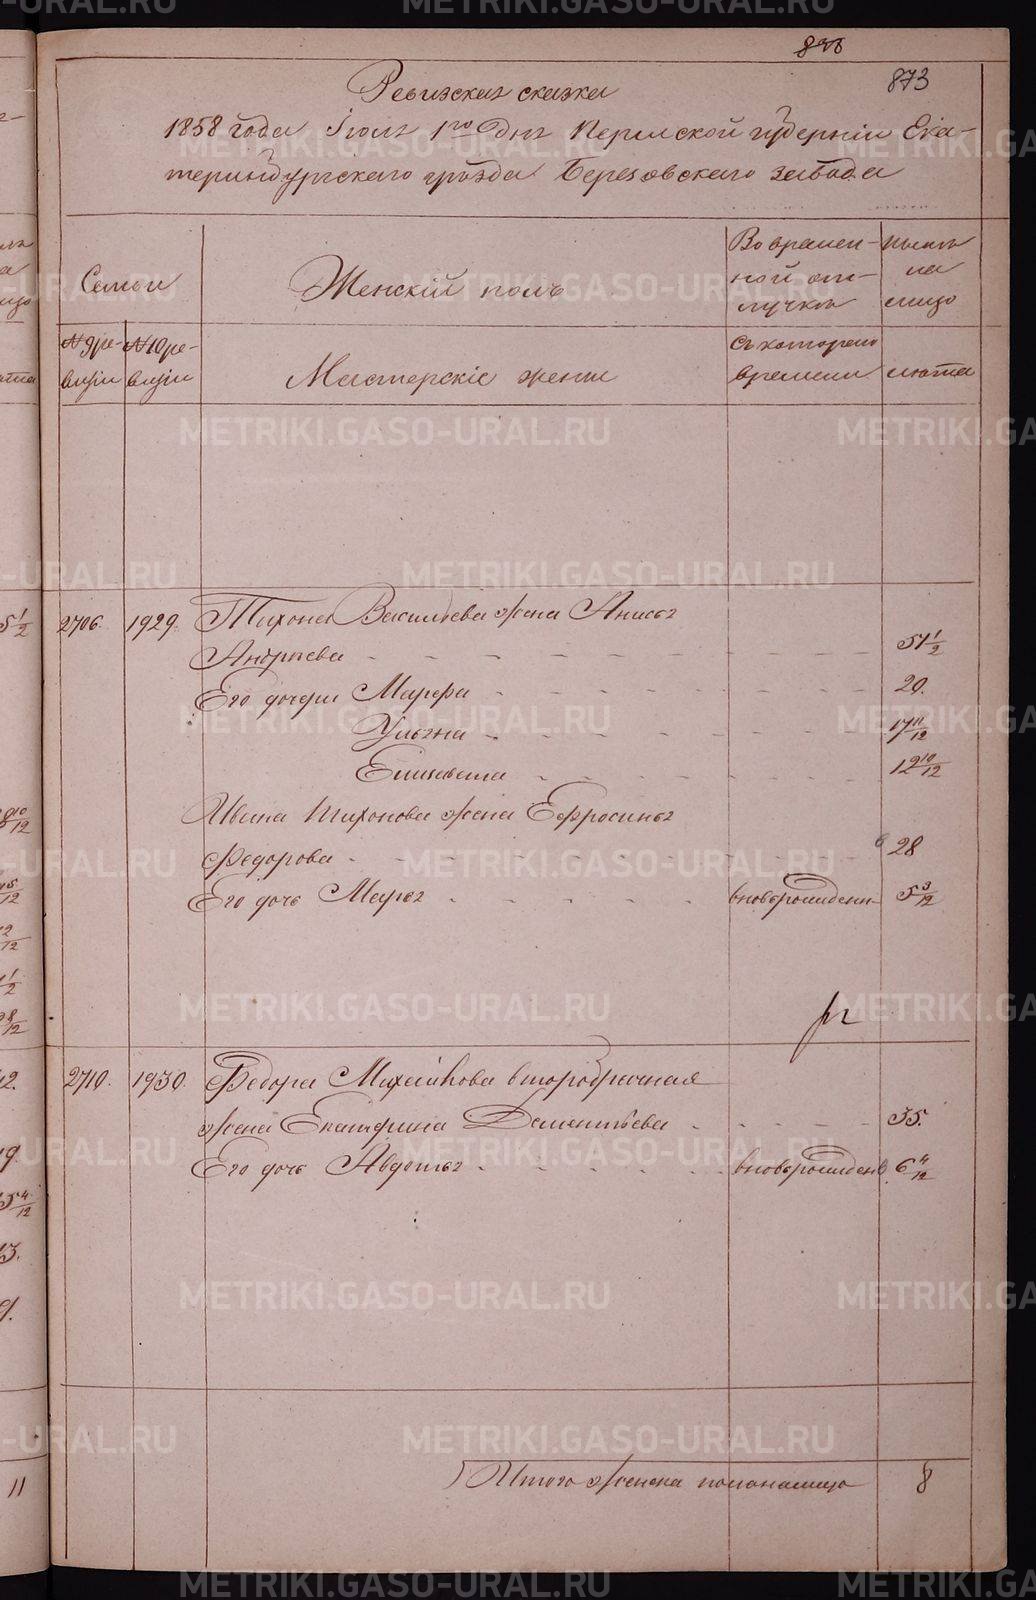 838
873
Ревизская сказка
1858 года Іюля 1го дня Пермской губерніи Ека-
теринбургскаго уѣзда Березовскаго завода
Семьи
Женскій полъ
Во времен-
ной от-
лучкѣ
Нынѣ
на
лицо
№ 9 ре-
визіи
№ 10 ре-
визіи
Мастерскіе жены
Съ котораго
времени
лѣта
2706. 1929. Тихона Васильева жена Анисья
Андреева 51 1/2
Его дочери Марфа 20.
Ульяна 17 11/12
Елисавета 12 10/12
Ивана Тихонова жена Ефросинья
Федорова 28
Его дочь Марья вновьрожденн 5 3/12
2710. 1930. Федора Михайлова второбрачная
жена Екатерина Дементьева 35.
Его дочь Авдотья вновьрожден 6 4/12
Итого женска пола налицо 8
5 1/2
11
METRIKI.GASO-URAL.RU